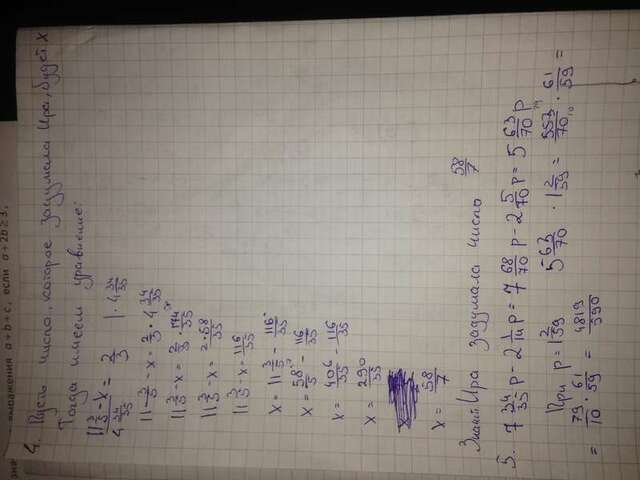 выражения a+b+c, если a+2b≥3,
4. Пусть число, которое задумала Ира, будет x
Тогда имеем уравнение:
(11 3/5 - x)/(4 34/35) = 2/3 | · 4 34/35
11 3/5 - x = 2/3 · 4 34/35
11 3/5 - x = 2/3 · 174/35
11 3/5 - x = 2·58/35
11 3/5 - x = 116/35
x = 11 3/5 - 116/35
x = 58/5 - 116/35
x = 406/35 - 116/35
x = 290/35
x = 58/7
Значит Ира задумала число 58/7
5. 7 34/35 p - 2 1/14 p = 7 68/70 p - 2 5/70 p = 5 63/70 p
При p = 1 2/59 5 63/70 · 1 2/59 = 553/70 · 61/59 =
= 79/10 · 61/59 = 4819/590